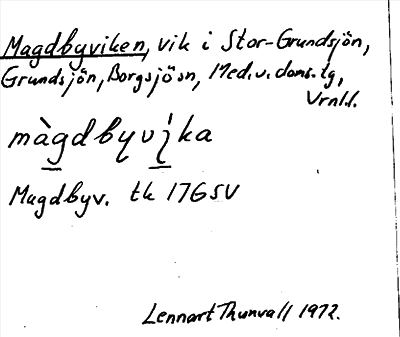 Magdbyviken, vik i Stor-Grundsjön,
Grundsjön, Borgsjö sn, Med.v. doms.tg,
Vrnl.l.
màgdbyvịka
Magdbyv. tk 17G SV
Lennart Thunvall 1972.